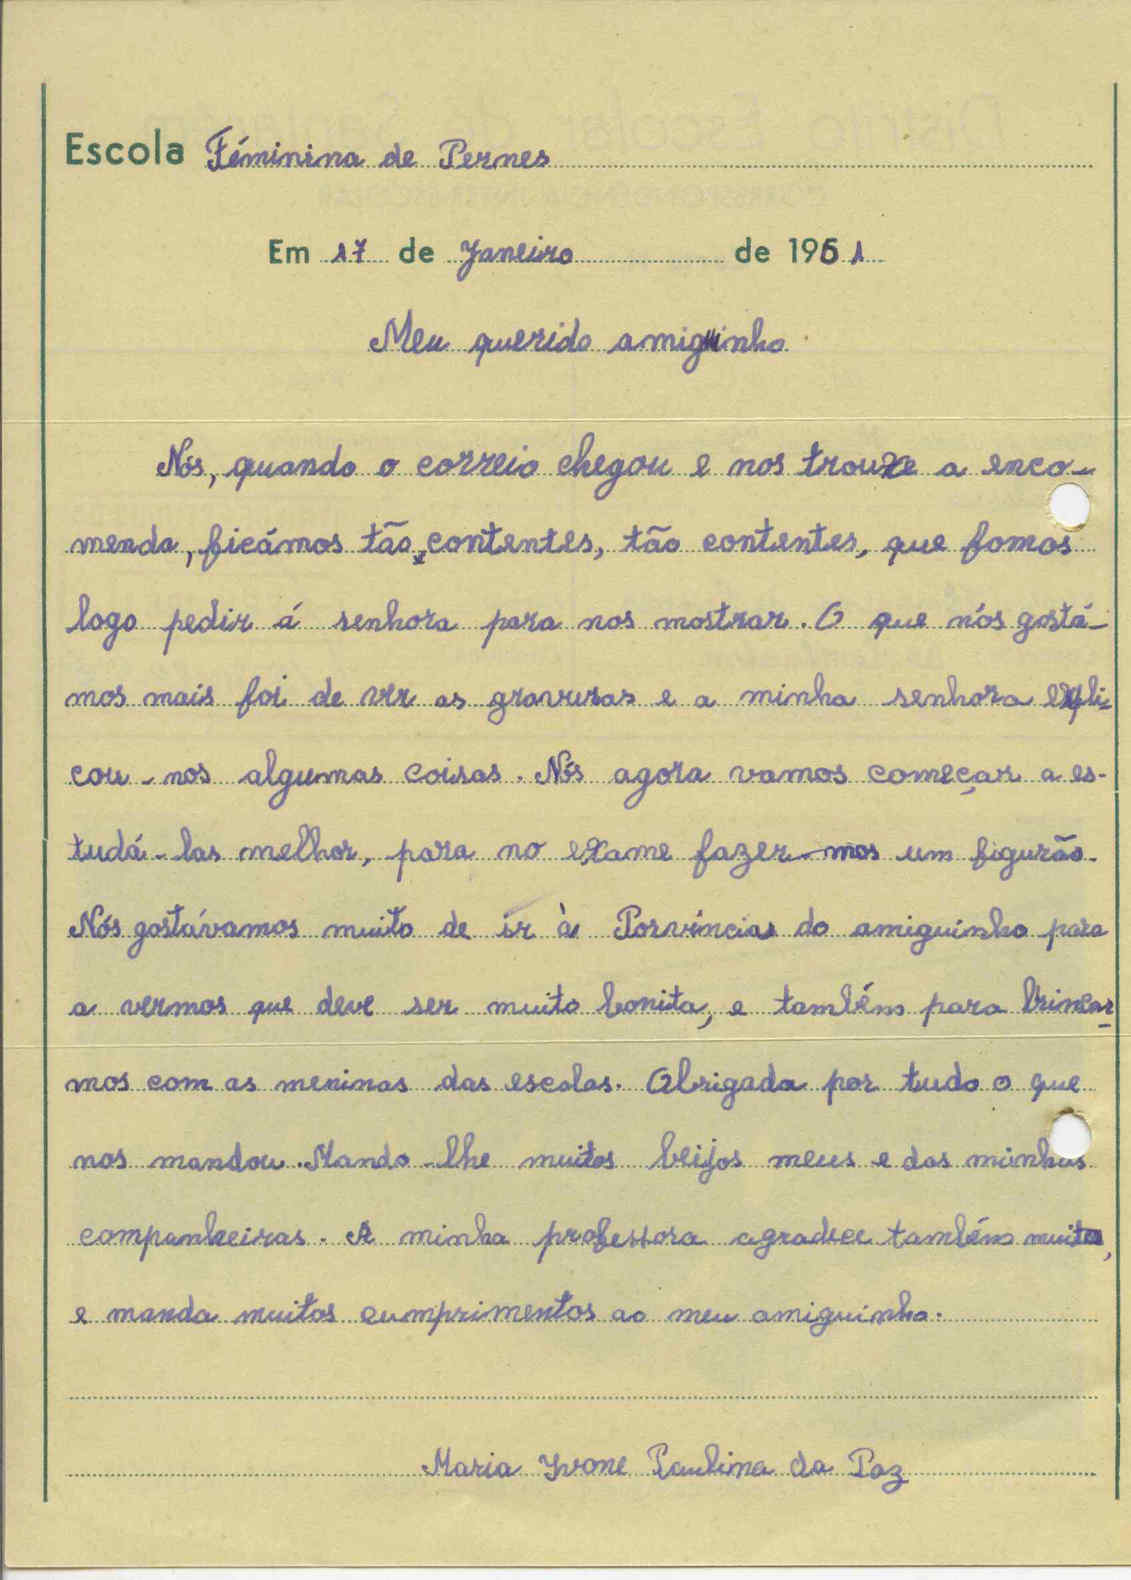 Escola Féminina de Pernes
Em 17 de Janeiro de 1961
Meu querido amiguinho
Nós, quando o correio chegou e nos trouxe a enco-
menda, ficámos tão contentes, tão contentes, que fomos
logo pedir á senhora para nos mostrar. O que nós gostá-
mos mais foi de ver as gravuras e a minha senhora expli-
cou-nos algumas coisas. Nós agora vamos começar a es-
tudá-las melhor, para no exame fazer-mos um figurão.
Nós gostávamos muito de ir à Porvíncias do amiguinho para
a vermos que deve ser muito bonita, e também para brincar-
mos com as meninas das escolas. Obrigada por tudo o que
nos mandou. Mando-lhe muitos beijos meus e das minhas
companheiras. A minha professora agradece também muito,
e manda muitos cumprimentos ao meu amiguinho.
Maria Yvone Paulima da Paz